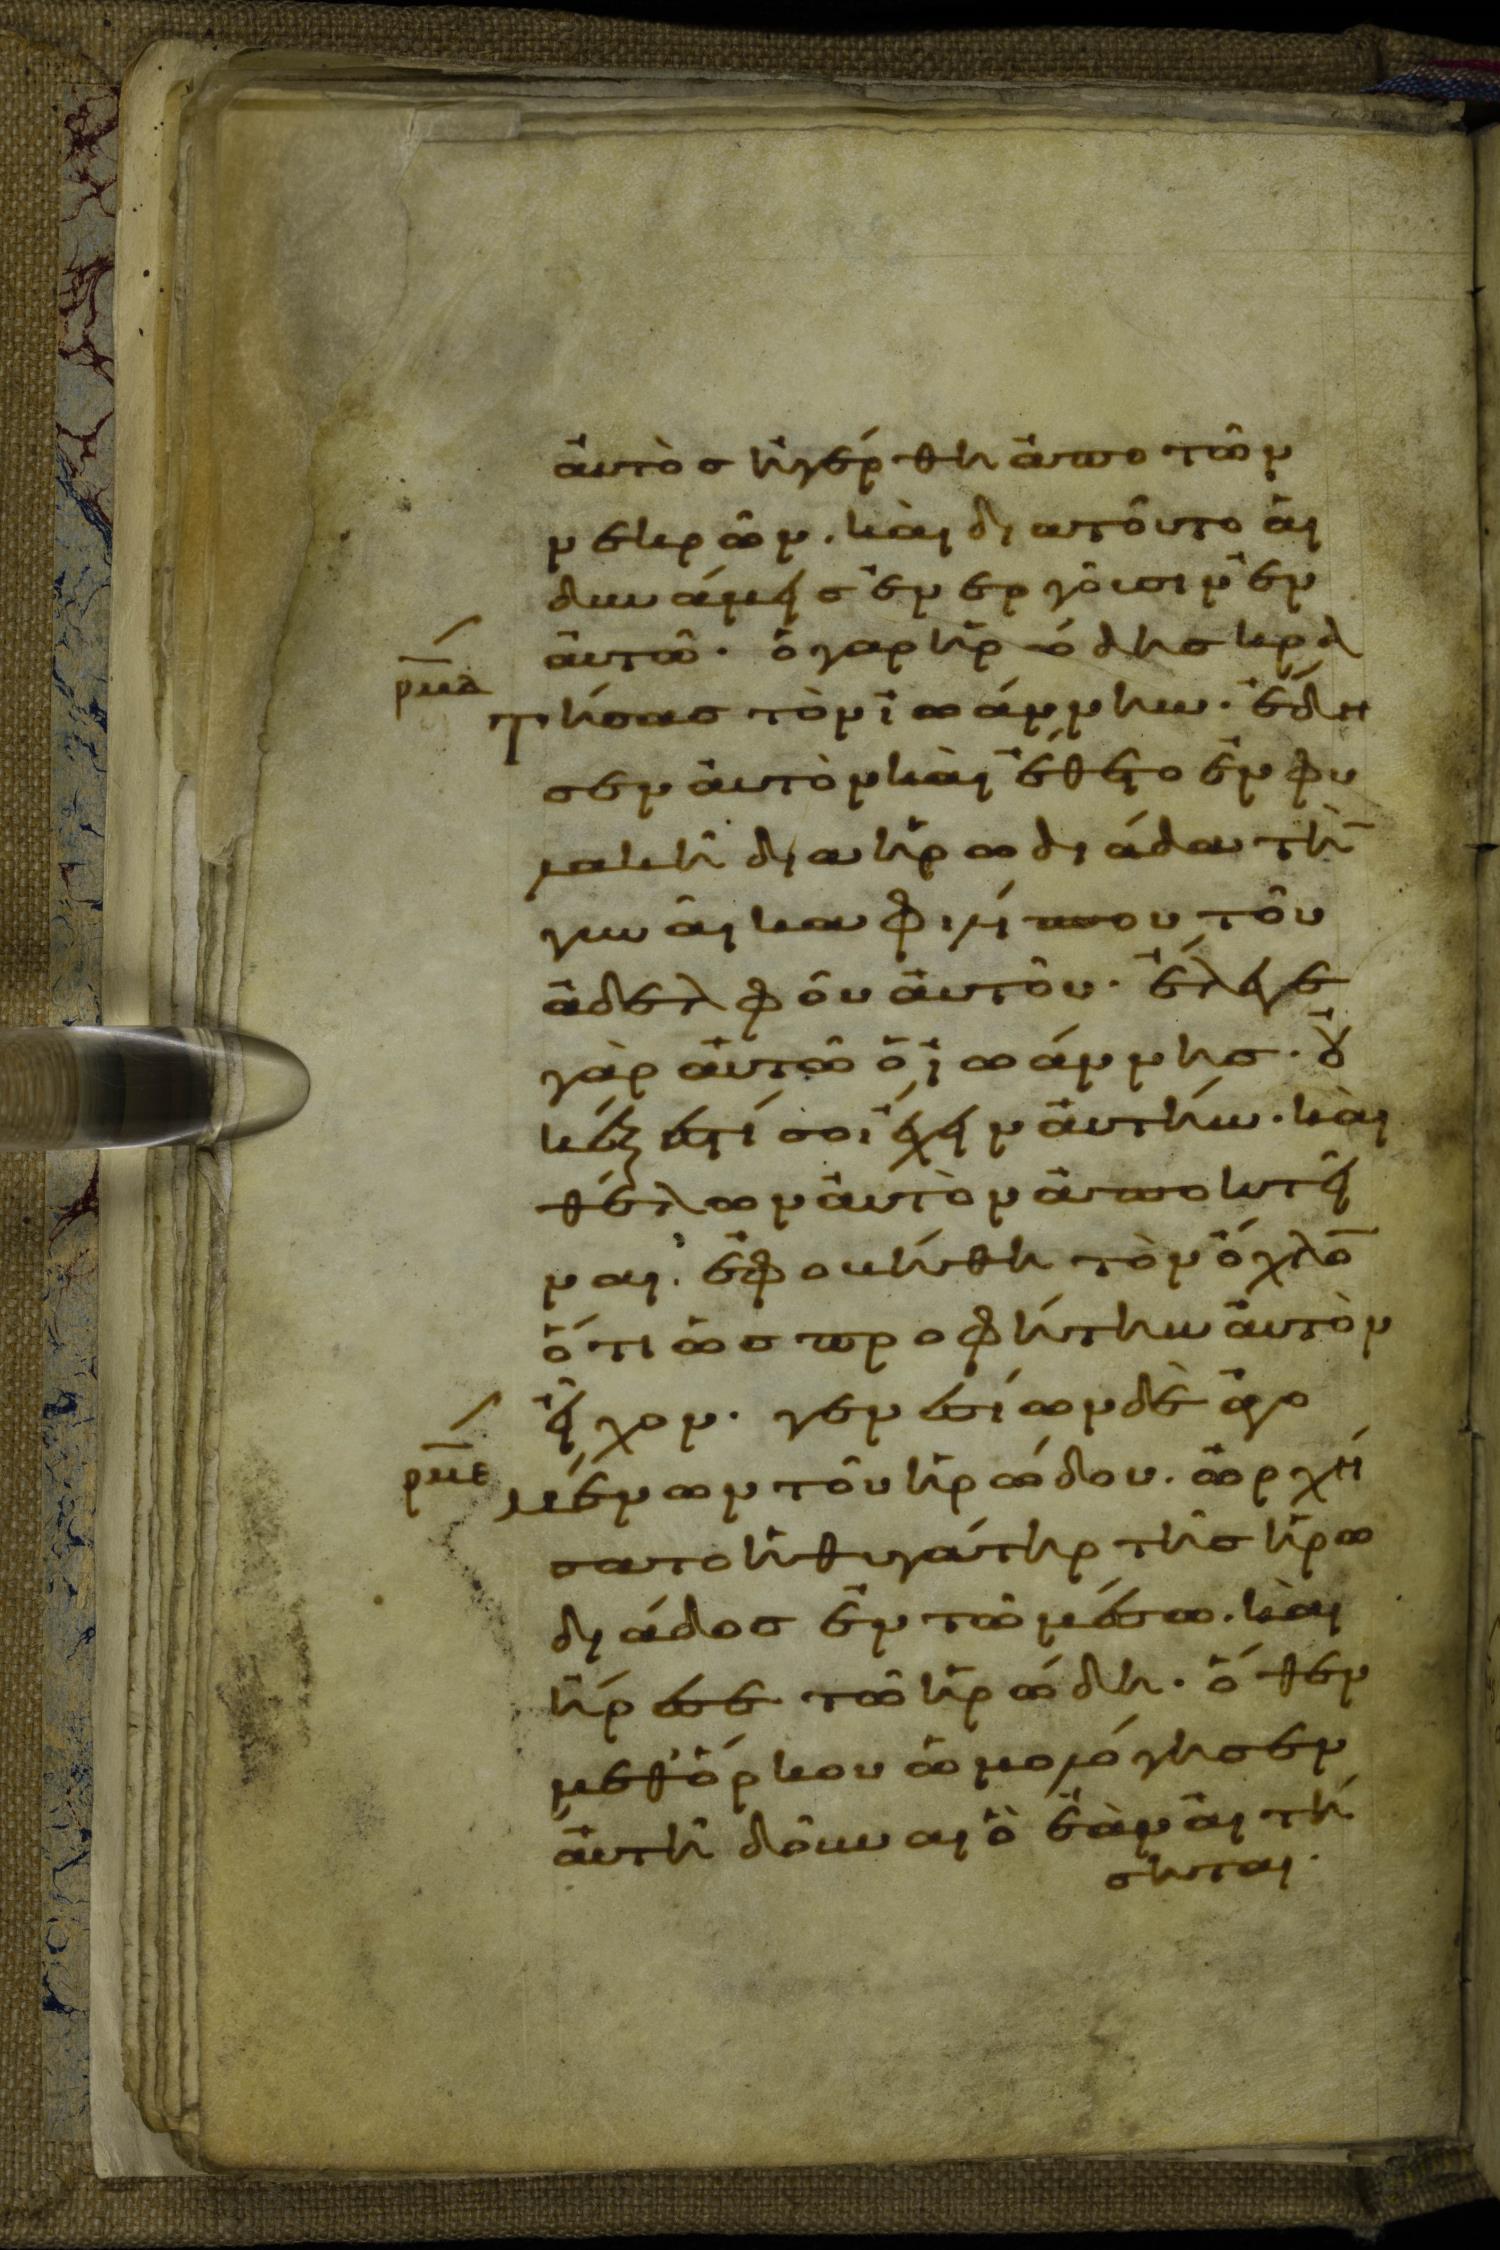 ἀυτὸσ ἠγέρθη ἀπο τῶν
νεκρῶν. κὰι διατοῦτο ἁι
δυνάμεισ ἐνεργοῦσιν ἐν
ἀυτῶ. ὁ γαρ ἡρώδησ κρα
ρμδ
τήσασ τὸν ἰωάννην. ἔδη
σεν ἀυτὸν κὰι ἔθετο ἐν φυ
λακῆ δια ἡρωδιάδα τὴ̄
γυνᾶικα φιλίππου τοῦ
ἀδελφοῦ ἀυτοῦ. ἔλεγε
γὰρ ἀυτῶ ὁ ἰωάννησ. ὀυ
κέξεστί σοι ἔχειν ἀυτήν. κὰι
θέλων ἀυτὸν ἀποκτεῖ
ναι. ἐφοβήθη τὸν ὄχλο̄
ὅτι ὡσ προφήτην ἀυτὸν
εἶχον. γενεσίων δὲ ἀγο
ρμε
μένων τοῦ ἡρώδου. ὠρχή
σατο ἡ θυγάτηρ τῆσ ἡρω
διάδοσ ἐν τῶ μέσω. κὰι
ἤρεσε τῶ ἡρώδη. ὅθεν
μεθ' ὅρκου ὡμολόγησεν
ἀυτῆ δοῦναι ὃ ἐὰν ἀιτή
σηται.